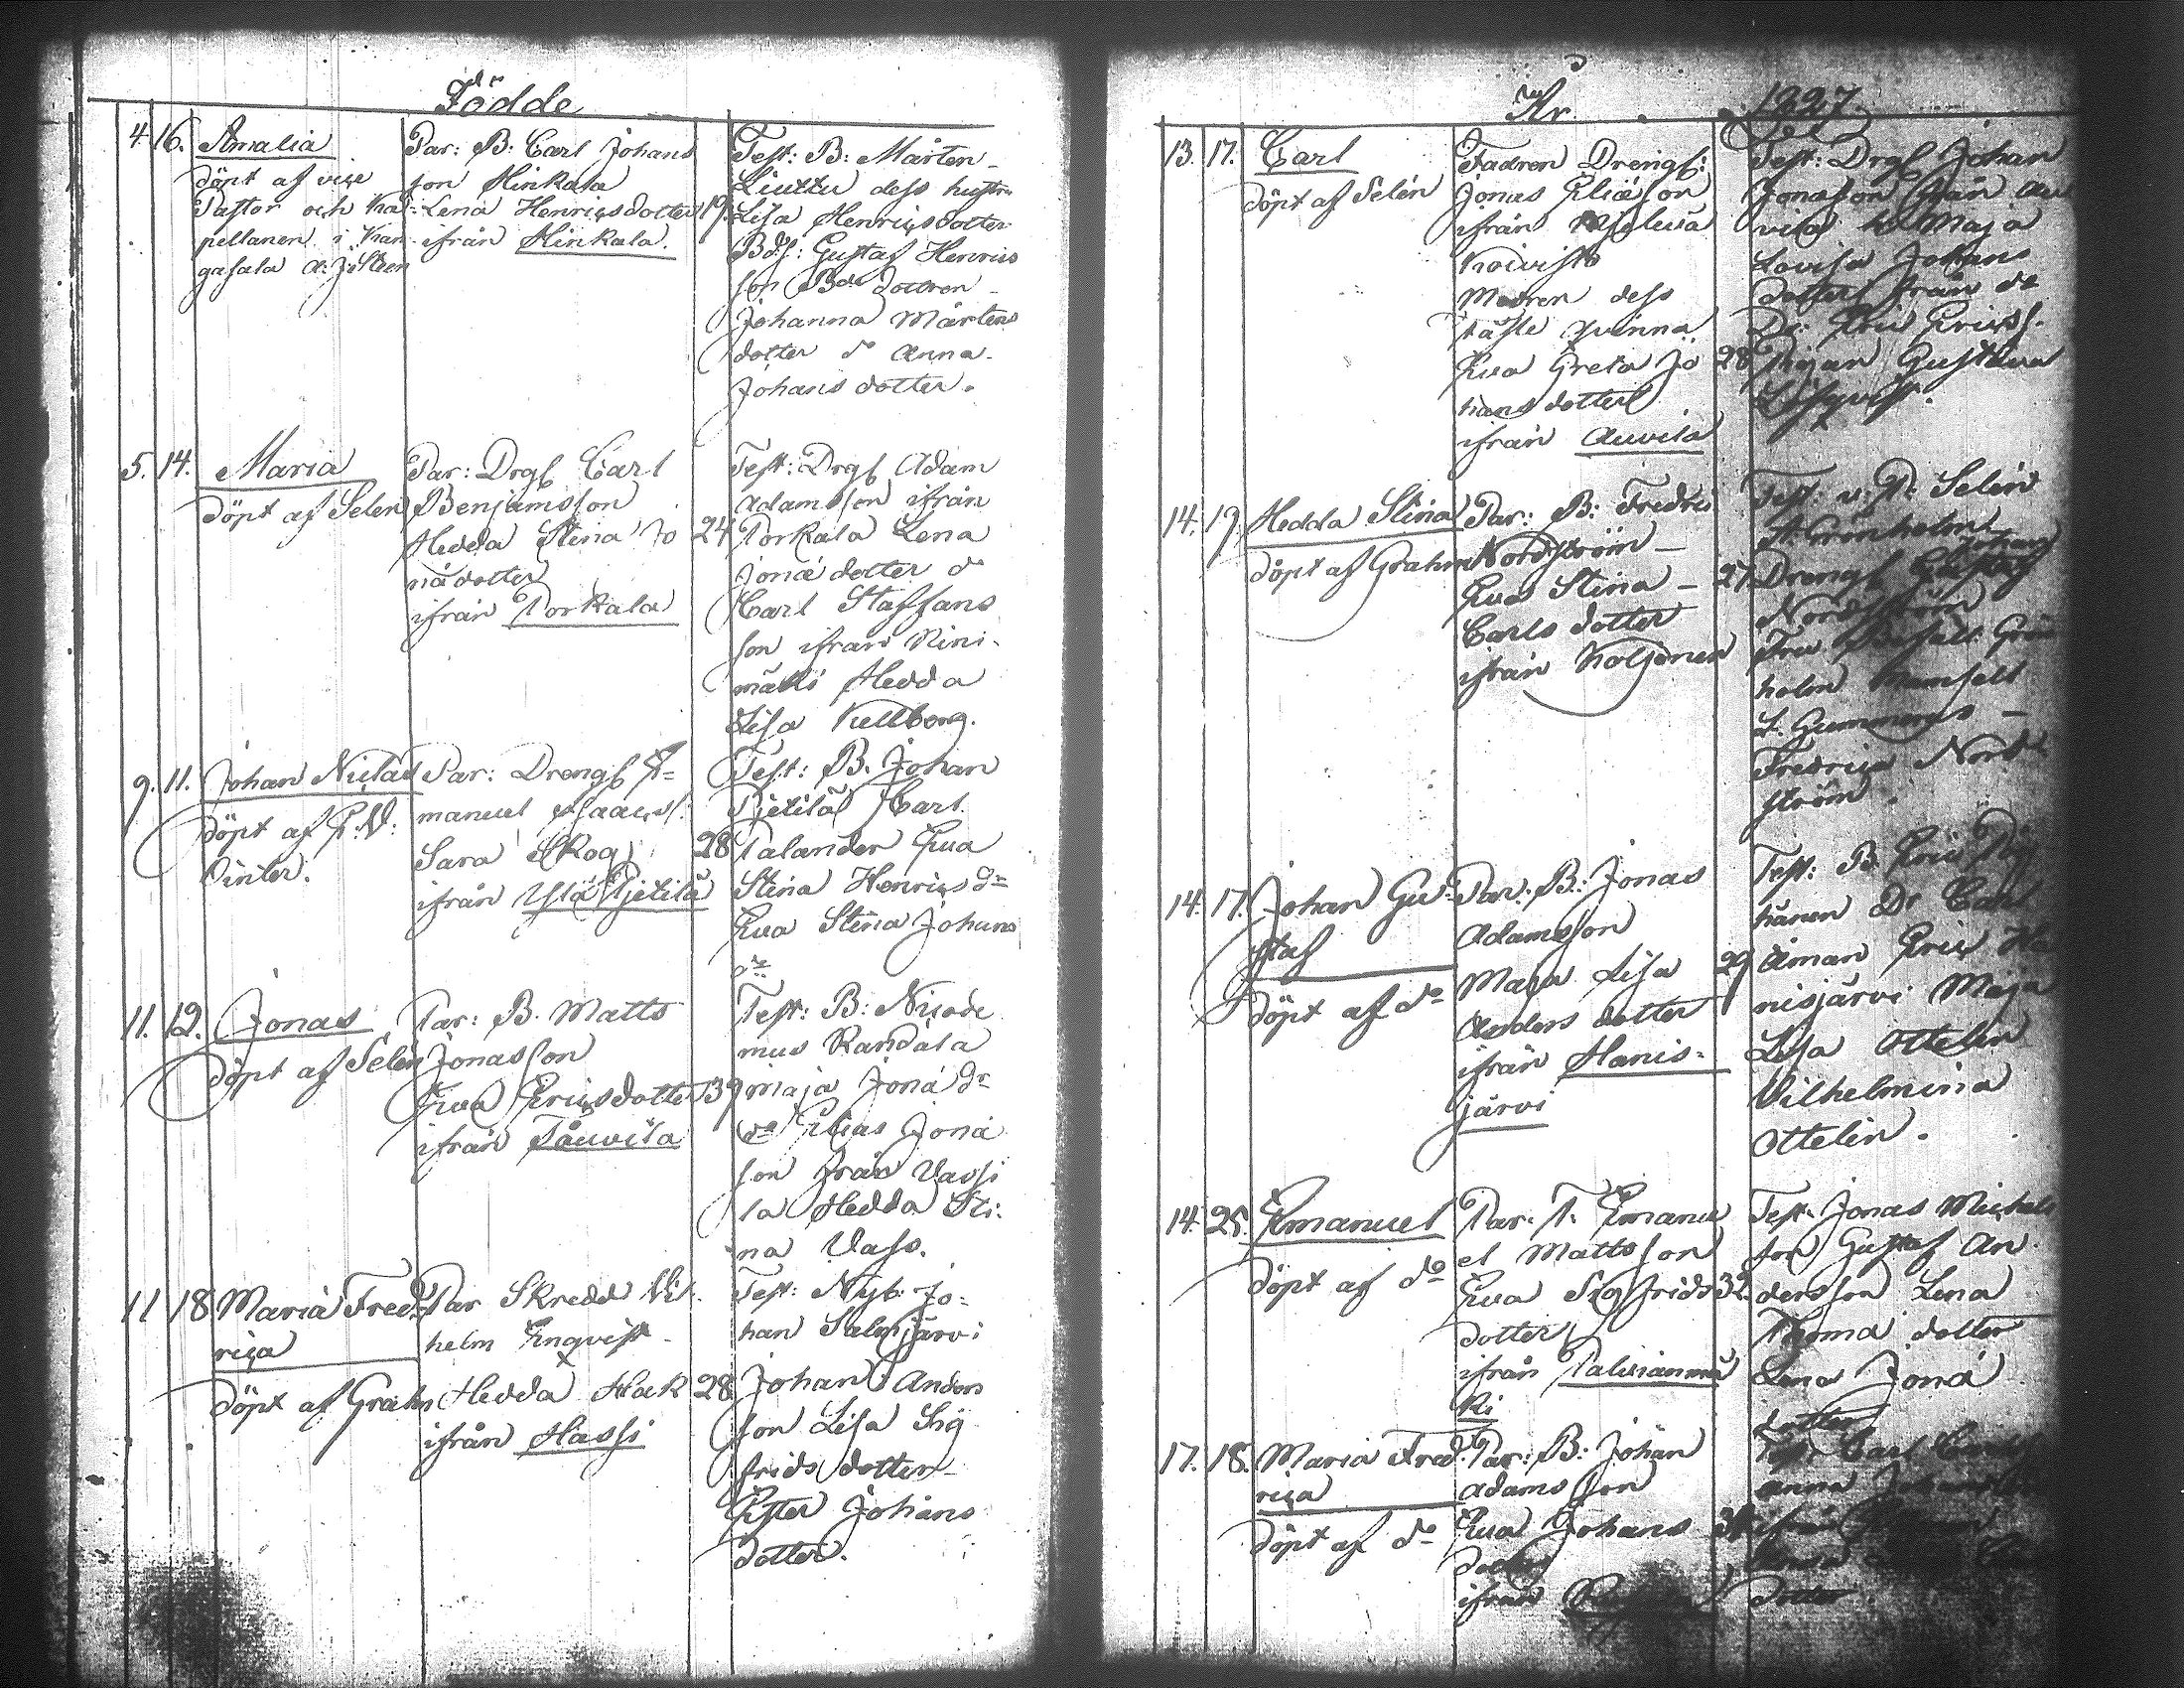 Födde
4. 16. Amalia
döpt af vice
Pastor och Ka-
pellanen i Kan-
gasala
Par: B: Carl Johans
son Hinkala
Lena Henricsdotter 19
ifrån Hinkala.
Test: B: Mårten
Liuttu dess hustru
Lisa Henricsdotter
Bds: Gustaf Henrics
son Bde dottren
Johanna Mårtens
dotter do Anna
Johans dotter.
5. 14. Maria
döpt af Selen
Par: Drgs Carl
Benjamsson
Hedda Stina Jo 24
nædotter
ifrån Torkala
Test: Drgs Adam
Adamsson ifrån
Torkala Lena
Jonæ dotter do
Carl Staffans
son ifrån Nini-
mäki Hedda
Lisa Kullberg.
9. 11. Johan Niclas
döpt af
Vinter.
Par: Drengs E-
manuel Isaacss:
Sara Skog 28
ifrån Ylä Pjetilä
Test: B. Johan
Pjetilä Carl
Palander Eva
Stina Henrics dr
Eva Stina Johans
dr
11. 12. Jonas
döpt af Selen
Par: B. Matts
Jonasson
Eva Ericsdotter 39
ifrån Tåuvila
Test: B: Nicode
mus Randala
Maja Jonæ dr
do Elias Jonæ
son från Vassi
la Hedda Sti-
na Vass.
11 18 Maria Fred-
rica
döpt af Grahn
Par Skredd Vil-
helm Enqvist
Hedda Hak 28
ifrån Hassi
Test: Nyb: Jo-
han Salmijärvi
Johan Anders
son Lisa Sig
frids dotter
Ester Johans
dotter.
År 1827.
13. 17. Carl
döpt af Selén
Fadren Drengs:
Jonas Eliæson
ifrån
Koivisto
Modren dess
fäste qvinna
Eva Greta Jo 28
hans dotter
ifrån Auvila
Test: Drgs Johan
Jonasson från Au
vila Maja
Lovisa Johans
dotter från do
Dr: Eric Ericss.
Pigan Gustava
Löfqvist.
14. 19. Hedda Stina
döpt af Grahn
Par: B: Fredric
Nordström
Eva Stina 27
Carls dotter
ifrån Koljonen
Test: v: P: Selén
Grönholm
Drengs Johan
Nordström
Fru Grön
holm Mamsell
L: Gummerus
Fredrica Nord
ström.
14. 17. Johan Gu-
staf
döpt af do
Par: B: Jonas
Adamsson
Maja Lisa 29
Anders dotter
ifrån Hanis-
järvi
Test: B Eric
hänen Dr Carl
Öman Eric Ha
nisjärvi Maja
Lisa Ottelin
Vilhelmina
Ottelin.
14. 25. Emanuel
döpt af do
Par: T. Emanu
el Mattsson
Eva Sigfrids 32
dotter
ifrån Palvianmä
ki
Test. Jonas Michels
son Gustaf An
dersson Lena
Thomæ dotter
Lena Jonæ
dotter
17. 18. Maria Fred-
rica
döpt af do
Par: B: Johan
Adamsson
Eva Johans
dotter
ifrån
Test: Carl
Anna
dotter